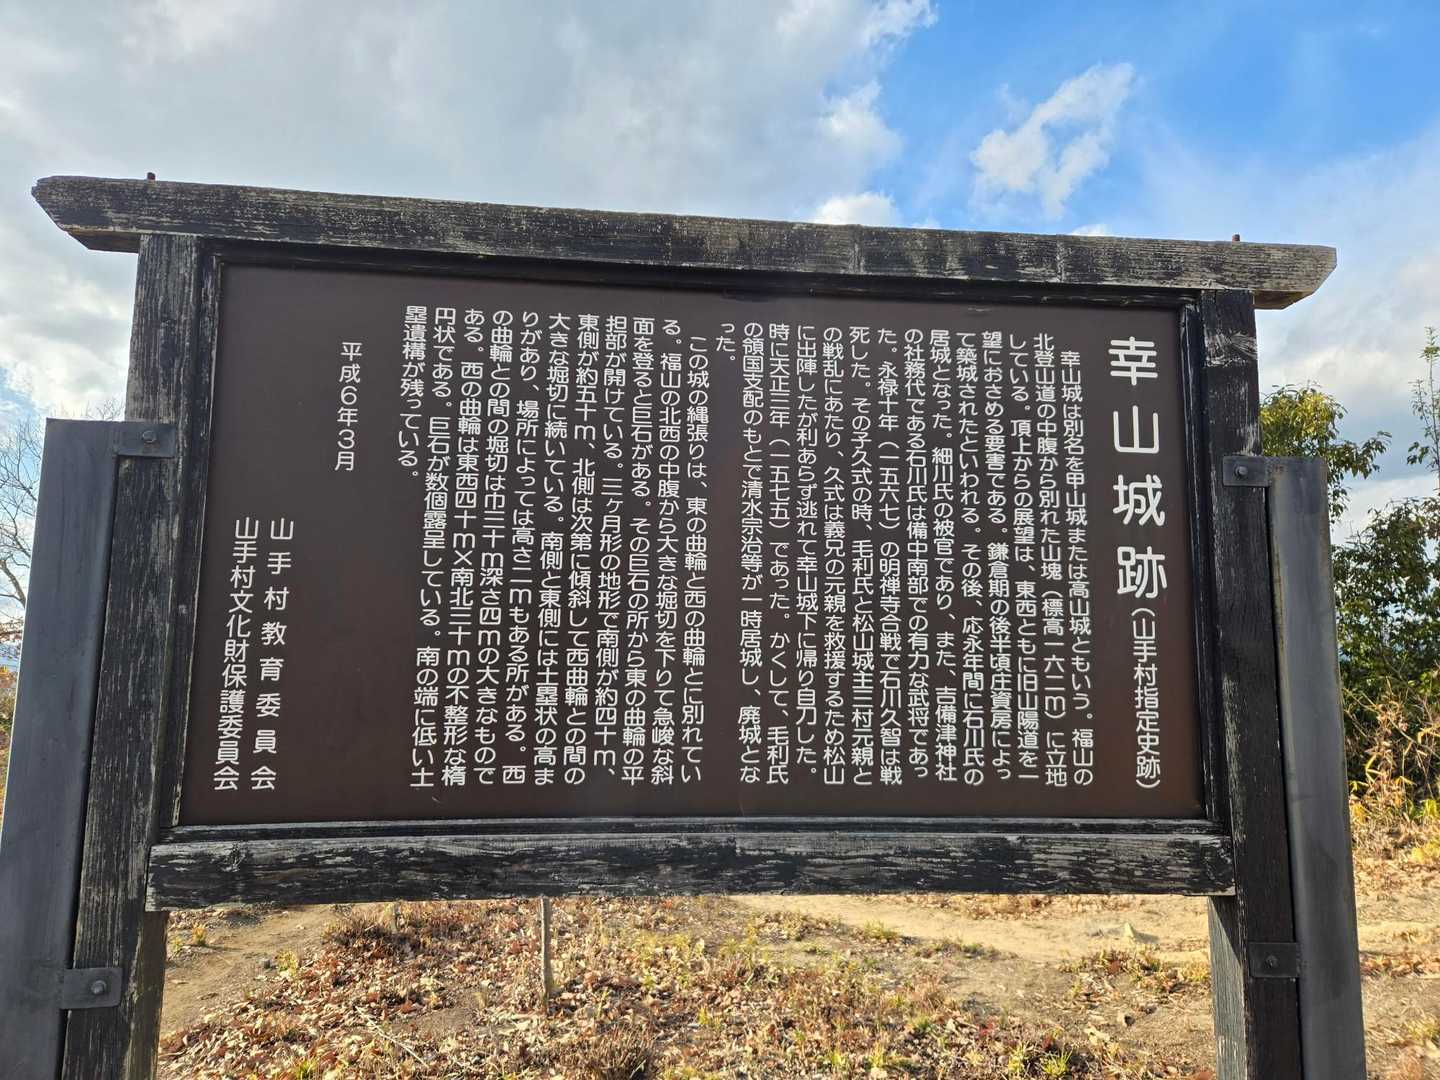 幸山城跡(山手村指定史跡)
幸山城は別名を甲山城または高山城ともいう。福山の
北登山道の中腹から別れた山塊(標高一六二m)に立地
している。頂上からの展望は、東西ともに旧山陽道を一
望におさめる要害である。鎌倉期の後半頃庄資房によっ
て築城されたといわれる。その後、応永年間に石川氏の
居城となった。細川氏の被官であり、また、吉備津神社
の社務代である石川氏は備中南部での有力な武将であっ
た。永禄十年(一五六七)の明禅寺合戦で石川久智は戦
死した。その子久式の時、毛利氏と松山城主三村元親と
の戦乱にあたり、久式は義兄の元親を救援するため松山
に出陣したが利あらず逃れて幸山城下に帰り自刀した。
時に天正三年(一五七五)であった。かくして、毛利氏
の領国支配のもとで清水宗治等が一時居城し、廃城とな
った。
この城の縄張りは、東の曲輪と西の曲輪とに別れてい
る。福山の北西の中腹から大きな堀切を下りて急峻な斜
面を登ると巨石がある。その巨石の所から東の曲輪の平
担部が開けている。三ヶ月形の地形で南側が約四十m、
東側が約五十m、北側は次第に傾斜して西曲輪との間の
大きな堀切に続いている。南側と東側には土塁状の高ま
りがあり、場所によっては高さ二mもある所がある。西
の曲輪との間の堀切は巾三十m深さ四mの大きなもので
ある。西の曲輪は東西四十m×南北三十mの不整形な楕
円状である。巨石が数個露呈している。南の端に低い土
塁遺構が残っている。
平成6年3月
山手村教育委員会
山手村文化財保護委員会